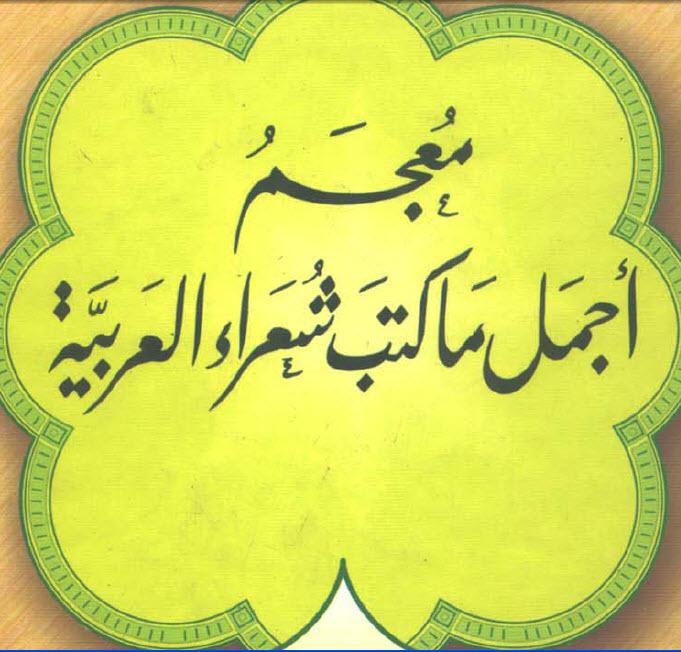 مُعجَمُ
أجمَل مَا كتبَ شُعَراء العَرَبيَّة